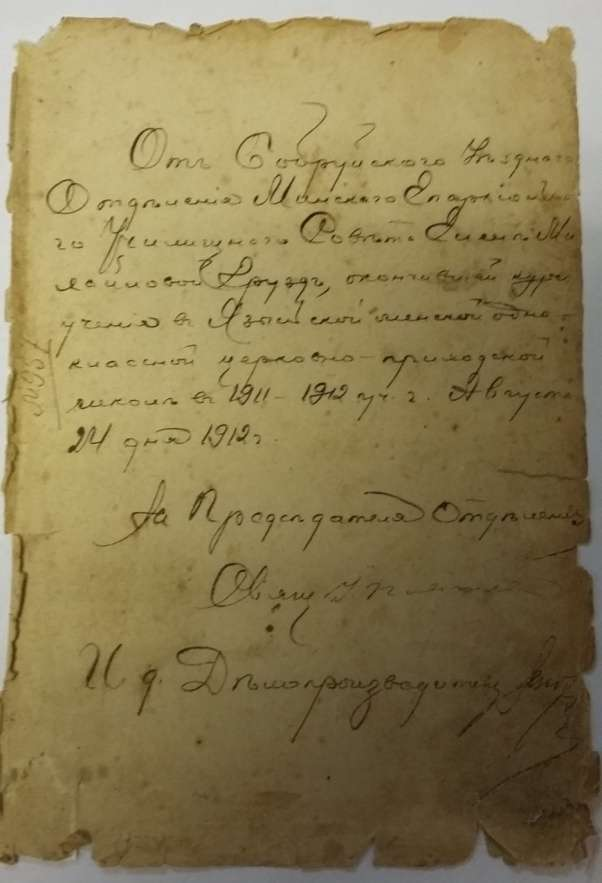 Отъ Бобруйскаго Уѣзднаго
Отдѣленія Минскаго Епархіально-
го Училищнаго Совѣта Еленѣ Ми
Друздъ, окончившей курсъ
ученія въ женской одно-
классной церковно-приходской
школѣ въ 1911-1912 уч. г. Августа
24 дня 1912 г.
За Предсѣдателя Отдѣленія
Свящ
И. д. Дѣлопроизводителя